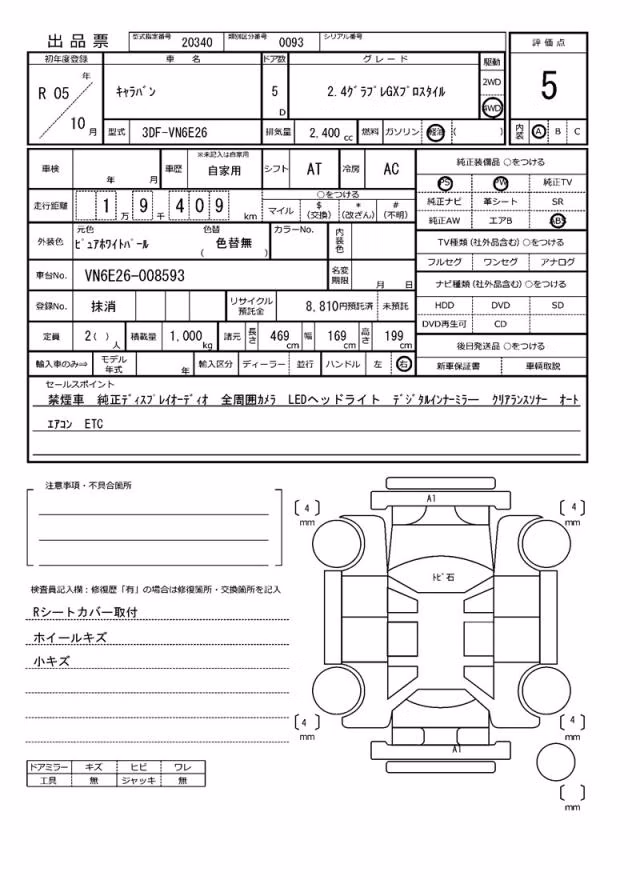 出品票 型式指定番号 20340 類別区分番号 0093 シリアル番号
初年度登録 車名 ドア数 グレード 駆動 評価点
R 05 年 10 月 キャラバン 5 D 2.4グラブレGXプロスタイル 2WD 4WD 5
型式 3DF-VN6E26 排気量 2,400 cc 燃料 ガソリン 軽油 ( ) 内装 A B C
車検 年 月 車歴 ※未記入は自家用 自家用 シフト AT 冷房 AC
走行距離 1 万 9 千 4 0 9 km ○をつける マイル $ (交換) * (改ざん) # (不明)
外装色 元色 ピュアホワイトパール 色替 ( 色替無 ) カラーNo. 内装色
車台No. VN6E26-008593 名変期限 月 日
登録No. 抹消 リサイクル預託金 8,810円預託済 未預託
定員 2( ) 人 積載量 1,000 kg 諸元 長さ 469 cm 幅 169 cm 高さ 199 cm
輸入車のみ⇒ モデル年式 年 輸入区分 ディーラー 並行 ハンドル 左 右
純正装備品 ○をつける
PS PW 純正TV
純正ナビ 革シート SR
純正AW エアB ABS
TV種類 (社外品含む) ○をつける
フルセグ ワンセグ アナログ
ナビ種類 (社外品含む) ○をつける
HDD DVD SD
DVD再生可 CD
後日発送品 ○をつける
新車保証書 車輌取説
セールスポイント
禁煙車 純正ディスプレイオーディオ 全周囲カメラ LEDヘッドライト デジタルインナーミラー クリアランスソナー オート
エアコン ETC
注意事項・不具合箇所
検査員記入欄：修復歴「有」の場合は修復箇所・交換箇所を記入
Rシートカバー取付
ホイールキズ
小キズ
ドアミラー キズ ヒビ ワレ
工具 無 ジャッキ 無
A1
[ 4 ] mm
[ 4 ] mm
トビ石
[ 4 ] mm
[ 4 ] mm
A1
[ ] mm